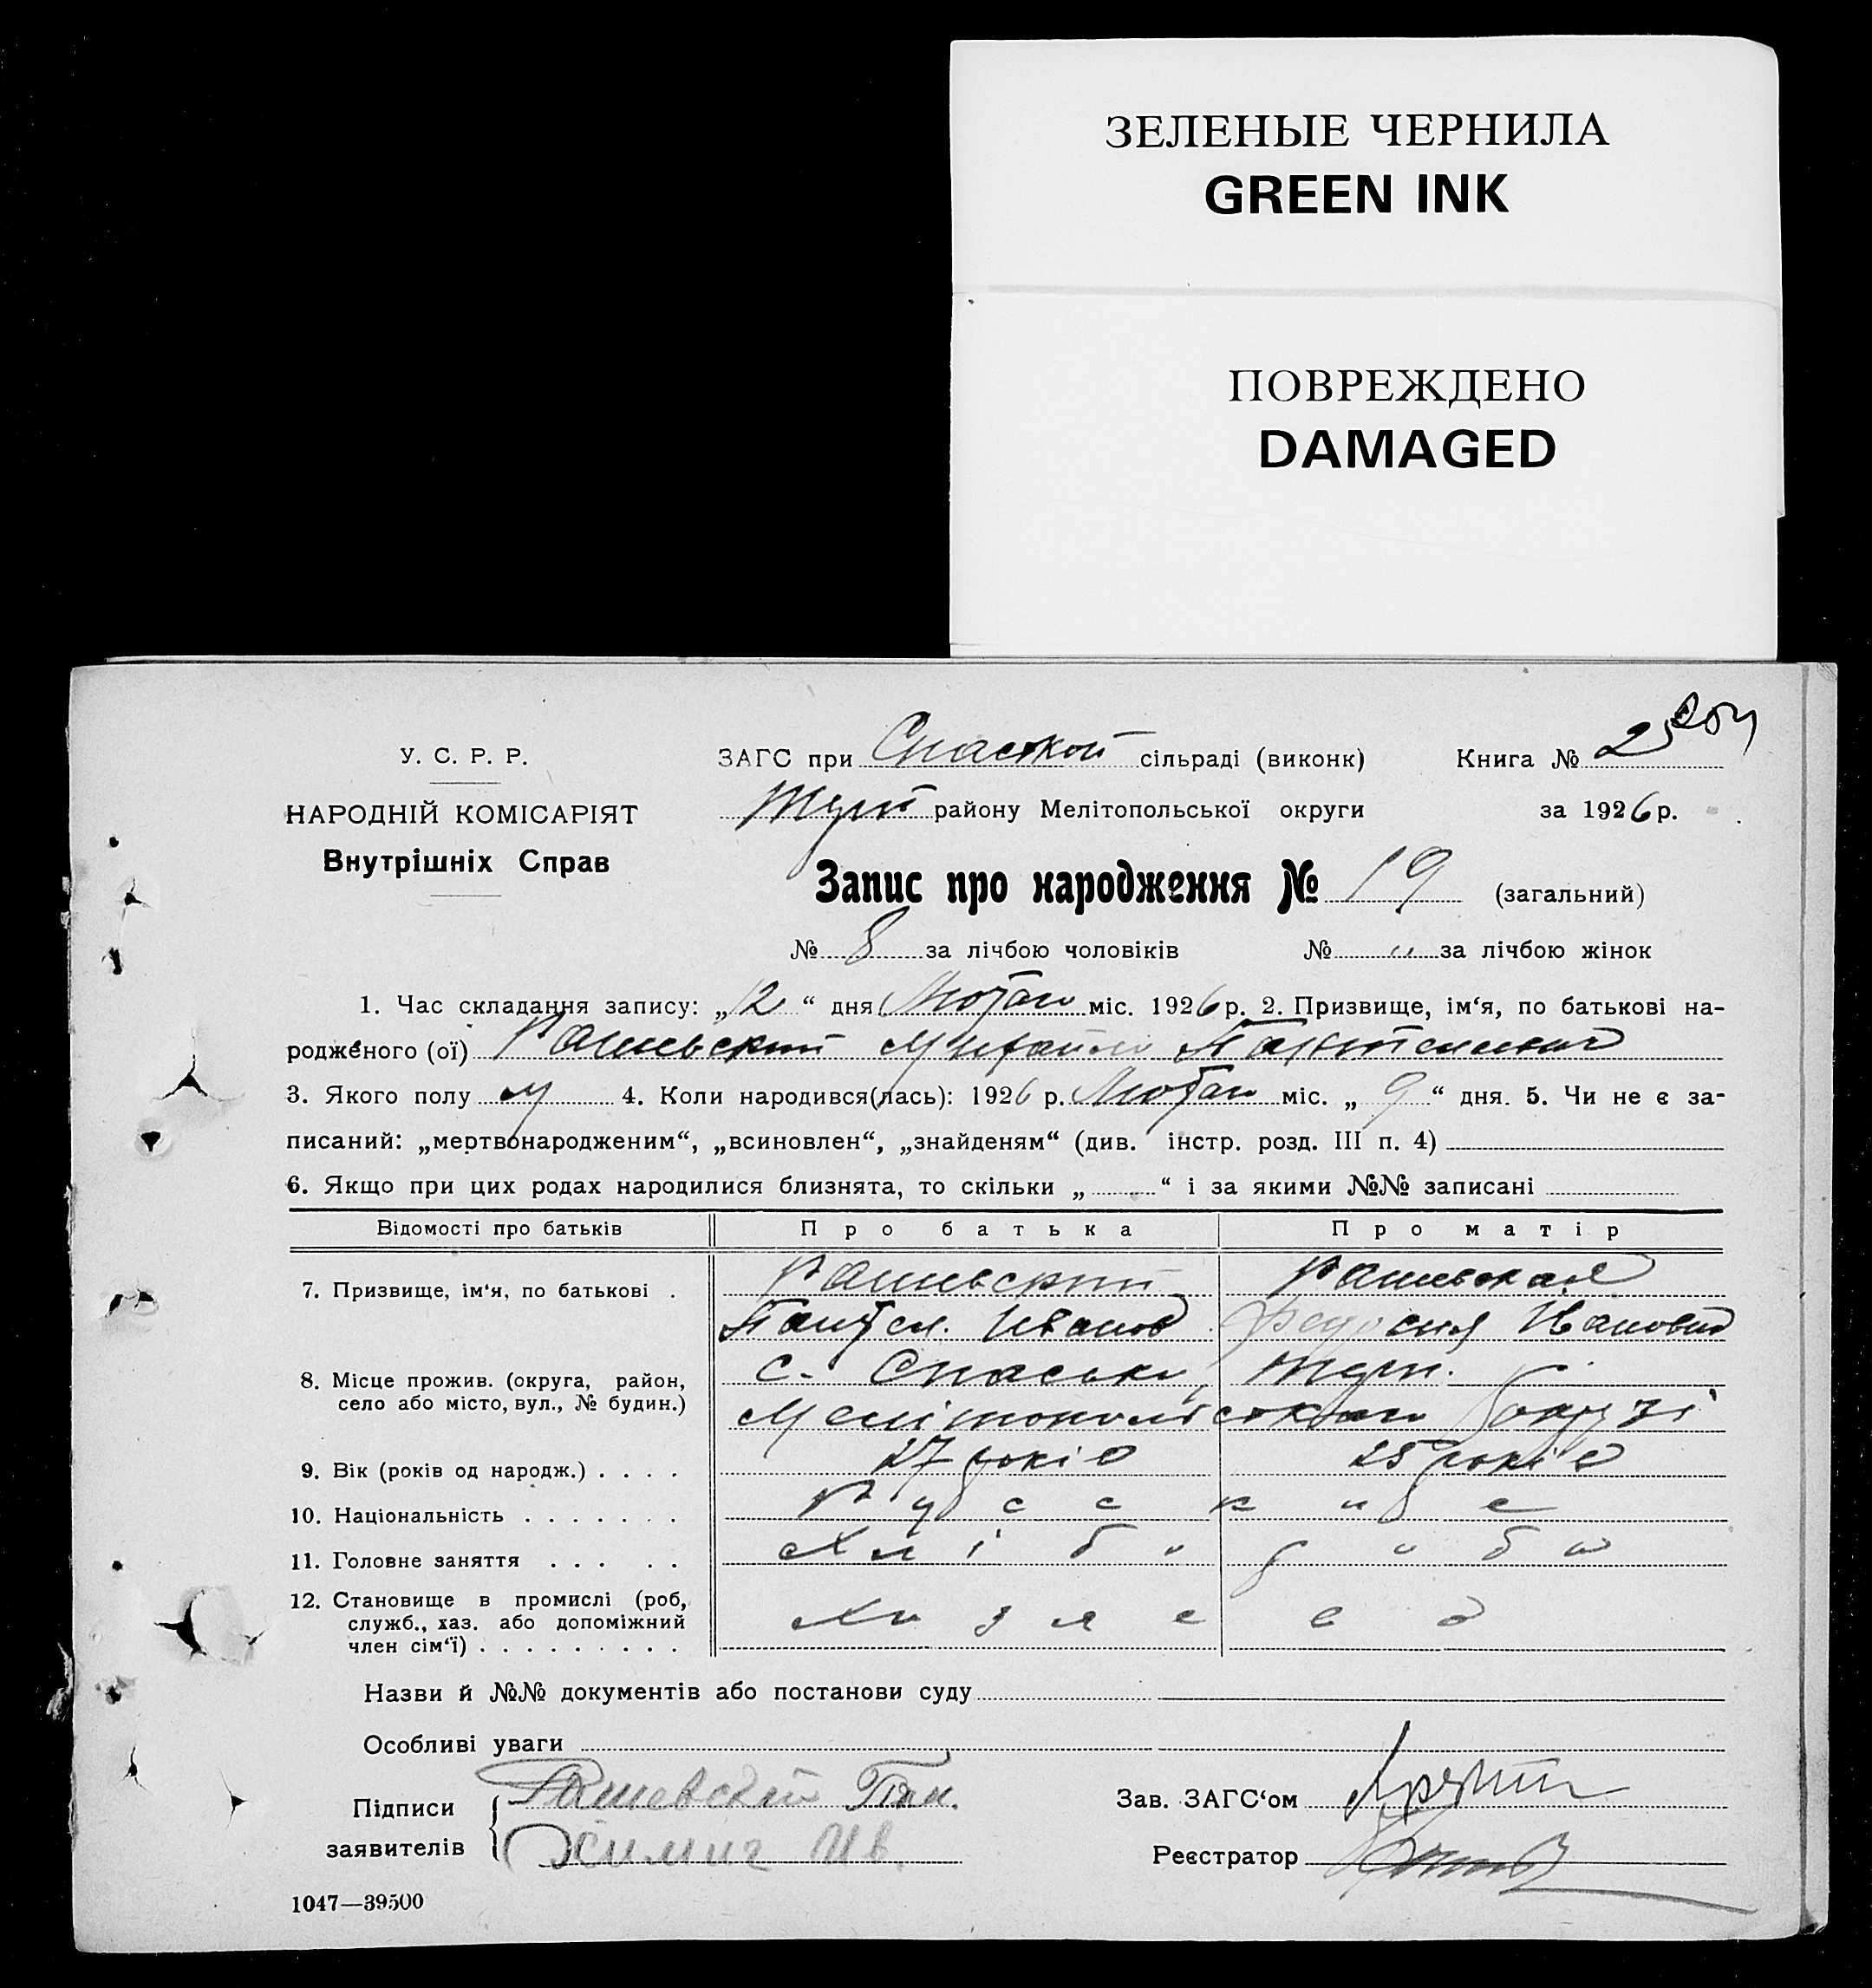 ЗЕЛЕНЫЕ ЧЕРНИЛА
GREEN INK
ПОВРЕЖДЕНО
DAMAGED
У. С. Р. Р.
НАРОДНІЙ КОМІСАРІЯТ
Внутрішніх Справ
ЗАГС при Спаской сільраді (виконк) Книга № 2
району Мелітопольської округи за 1926 р.
Запис про народження № 19 (загальний)
№ 8 за лічбою чоловіків № " за лічбою жінок
1. Час складання запису: „12“ дня Лютаго міс. 1926 р. 2. Призвище, ім‘я, по батькові на-
родженого (ої) Рашевский Михайло Пантелеевич
3. Якого полу м 4. Коли народився(лась): 1926 р. Лютаго міс. „ 9 “ дня. 5. Чи не є за-
писаний: „мертвонародженим“, „всиновлен“, „знайденям“ (див. інстр. розд. III п. 4)
6. Якщо при цих родах народилися близнята, то скільки „ “ і за якими №№ записані
Відомості про батьків Про батька Про матір
7. Призвище, ім‘я, по батькові . Рашевский Рашевская
Пантел. Иванов Федосия Ивановна
8. Місце прожив. (округа, район, с. Спаське,
село або місто, вул., № будин.) Мелітопольськаго округі
9. Вік (років од народж.) . . . . 27 років 25 років
10. Національність . . . . . . . Русские
11. Головне заняття . . . . . Хліборобы
12. Становище в промислі (роб,
служб., хаз. або допоміжний Хозяева
член сім‘ї) . . . . . . . . .
Назви й №№ документів або постанови суду
Особливі уваги
Підписи Рашевский Пан.
заявителів Ив.
Зав. ЗАГС‘ом
Реєстратор
1047—39500